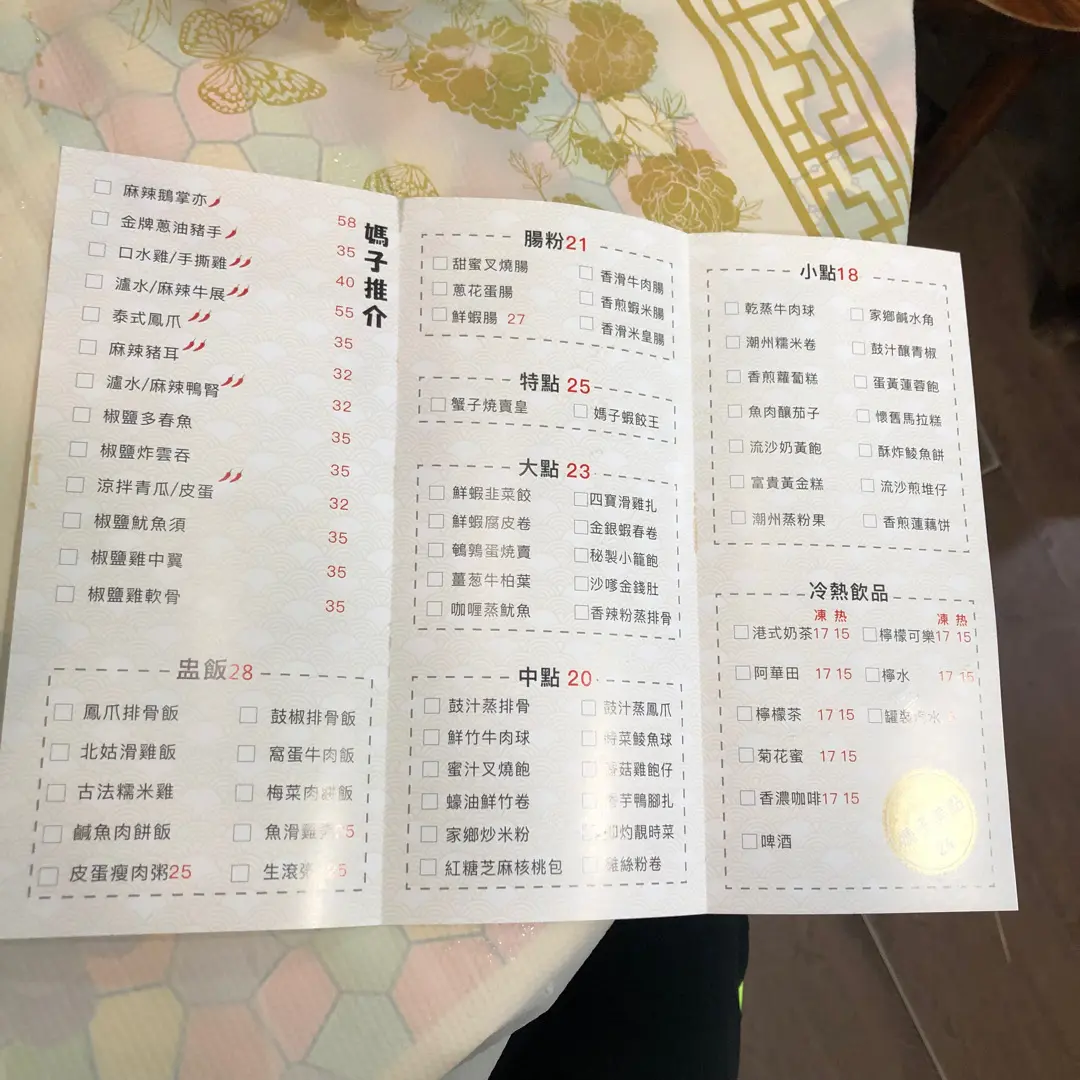 媽子推介
麻辣鵝掌亦 58
金牌蔥油豬手 35
口水雞/手撕雞 40
瀘水/麻辣牛展 55
泰式鳳爪 35
麻辣豬耳 32
瀘水/麻辣鴨腎 32
椒鹽多春魚 35
椒鹽炸雲吞 35
涼拌青瓜/皮蛋 32
椒鹽魷魚須 35
椒鹽雞中翼 35
椒鹽雞軟骨 35
盅飯28
鳳爪排骨飯 鼓椒排骨飯
北姑滑雞飯 窩蛋牛肉飯
古法糯米雞 梅菜肉餅飯
鹹魚肉餅飯 魚滑雞
皮蛋瘦肉粥25 生滾粥
腸粉21
甜蜜叉燒腸 香滑牛肉腸
蔥花蛋腸 香煎蝦米腸
鮮蝦腸 27 香滑米皇腸
特點 25
蟹子燒賣皇 媽子蝦餃王
大點 23
鮮蝦韭菜餃 四寶滑雞扎
鮮蝦腐皮卷 金銀蝦春卷
鵪鶉蛋燒賣 秘製小籠飽
薑葱牛柏葉 沙嗲金錢肚
咖喱蒸魷魚 香辣粉蒸排骨
中點 20
鼓汁蒸排骨 鼓汁蒸鳳爪
鮮竹牛肉球 時菜鯪魚球
蜜汁叉燒飽 菇雞飽仔
蠔油鮮竹卷 芋鴨腳扎
家鄉炒米粉 灼靚時菜
紅糖芝麻核桃包 雞絲粉卷
小點18
乾蒸牛肉球 家鄉鹹水角
潮州糯米卷 鼓汁釀青椒
香煎蘿蔔糕 蛋黃蓮蓉飽
魚肉釀茄子 懷舊馬拉糕
流沙奶黃飽 酥炸鯪魚餅
富貴黃金糕 流沙煎堆仔
潮州蒸粉果 香煎蓮藕饼
冷熱飲品
凍 热 凍 热
港式奶茶17 15 檸檬可樂17 15
阿華田 17 15 檸水 17 15
檸檬茶 17 15 罐裝汽水
菊花蜜 17 15
香濃咖啡17 15
啤酒